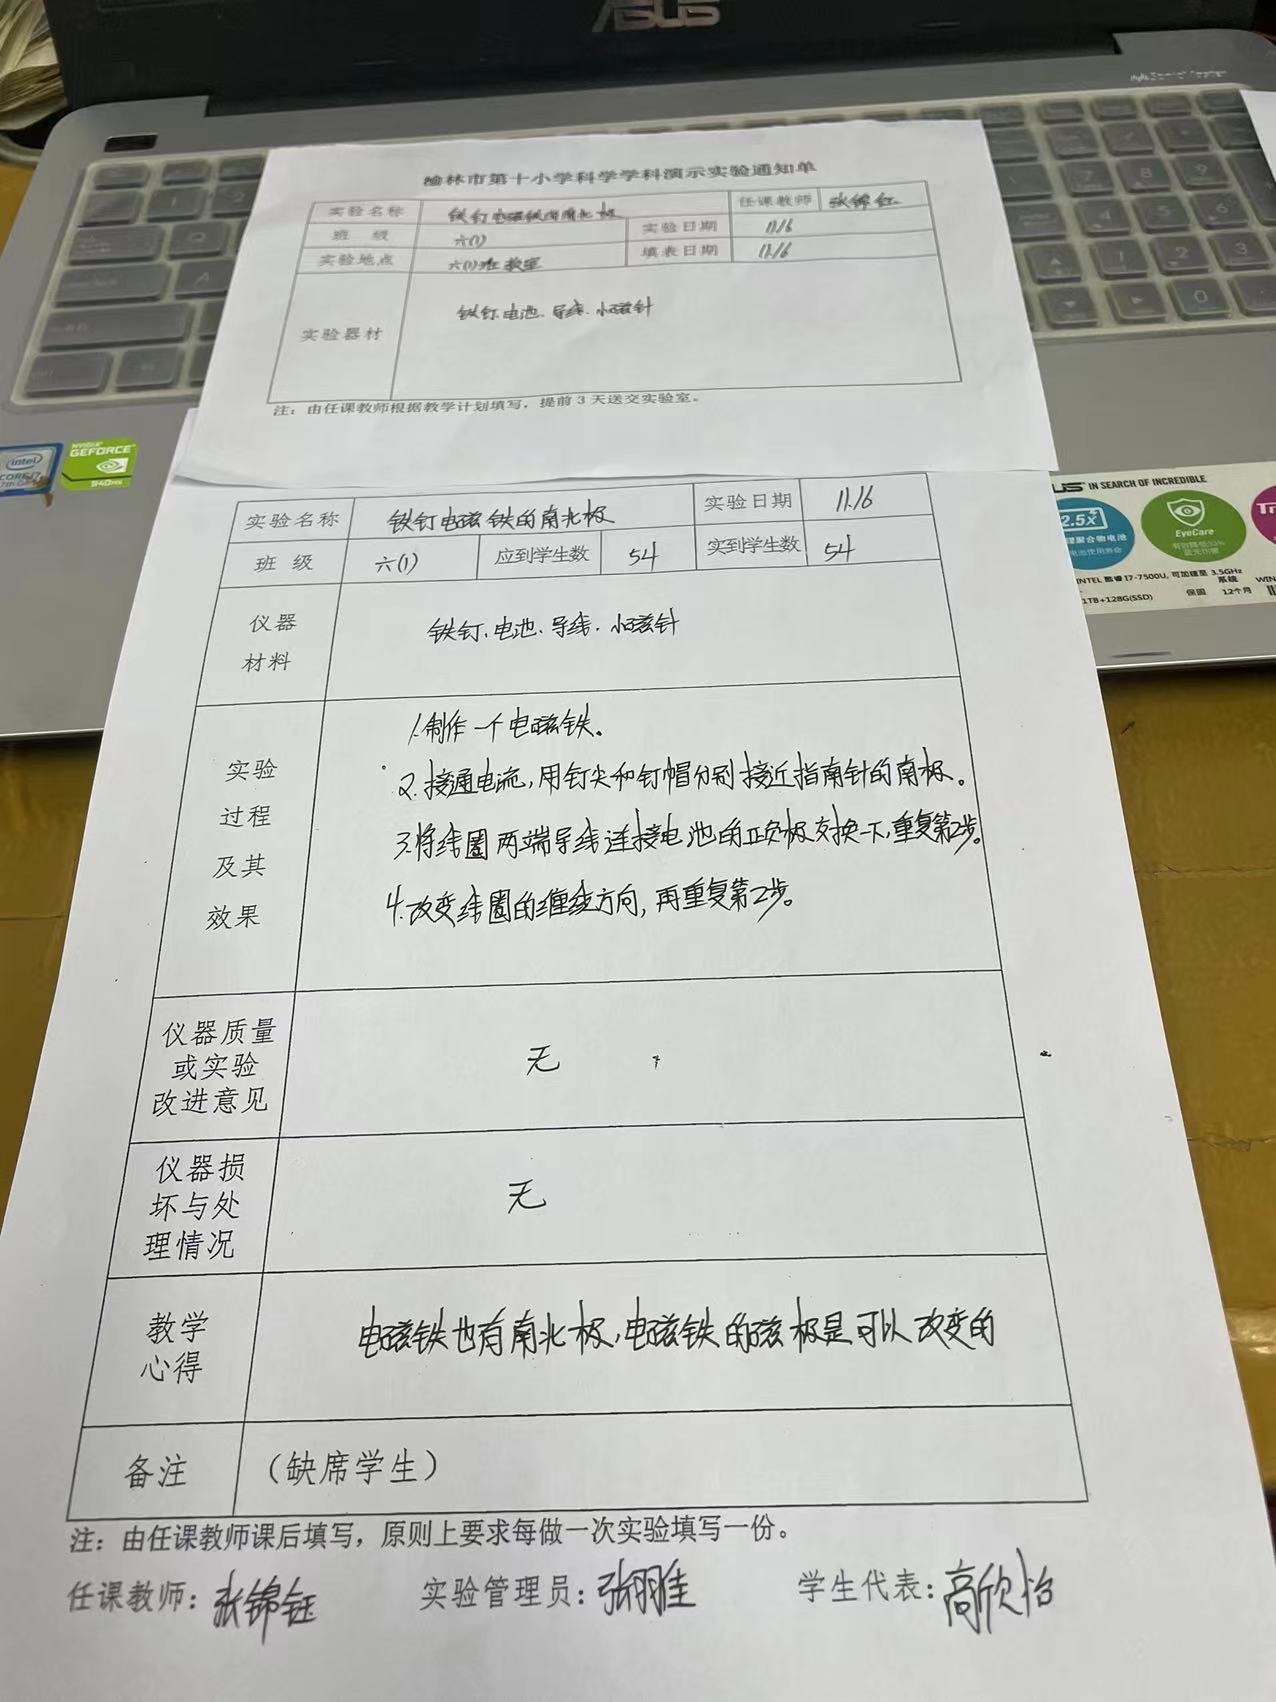 ASUS
榆林市第十小学科学学科演示实验通知单
实验名称 铁钉电磁铁的南北极 任课教师 张锦钰
班 级 六(1) 实验日期 11.16
实验地点 六(1)班教室 填表日期 11.16
实验器材 铁钉、电池、导线、小磁针
注：由任课教师根据教学计划填写，提前3天送交实验室。
intel
CORE i7
7th Gen
NVIDIA
GEFORCE
940MX
IN SEARCH OF INCREDIBLE
2.5x
EyeCare
INTEL 酷睿 I7-7500U, 可加速至 3.5GHz
系统
1TB+128G(SSD)
保固 12个月
实验名称 铁钉电磁铁的南北极 实验日期 11.16
班 级 六(1) 应到学生数 54 实到学生数 54
仪器
材料
铁钉、电池、导线、小磁针
实验
过程
及其
效果
1.制作一个电磁铁。
2.接通电流,用钉尖和钉帽分别接近指南针的南极。
3.将线圈两端导线连接电池的正负极交换一下,重复第2步。
4.改变线圈的缠绕方向,再重复第2步。
仪器质量
或实验
改进意见
无
仪器损
坏与处
理情况
无
教学
心得
电磁铁也有南北极,电磁铁的磁极是可以改变的
备注 （缺席学生）
注：由任课教师课后填写，原则上要求每做一次实验填写一份。
任课教师：张锦钰 实验管理员：张翔佳 学生代表：高欣怡